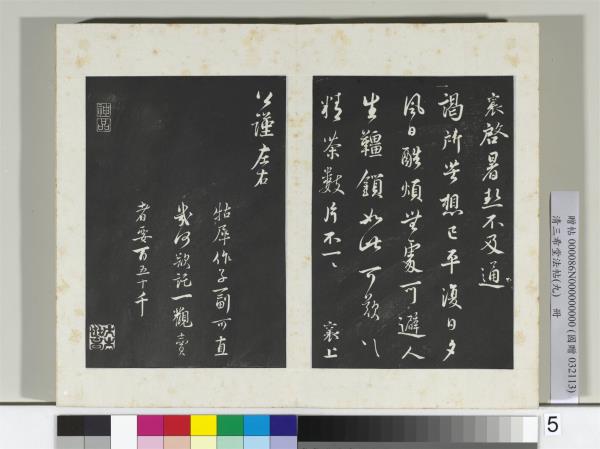 襄啓暑熱不及通
謁所苦想已平復日夕
風日酷煩無處可避人
生韁鎖如此可歎
精茶數片不一一
襄上
公謹左右
牯犀作子一副可直
幾何欲託一觀賣
者要百五十千
神品
贈帖 000086N000000000 (國贈 032113)
清三希堂法帖(九) 冊
5